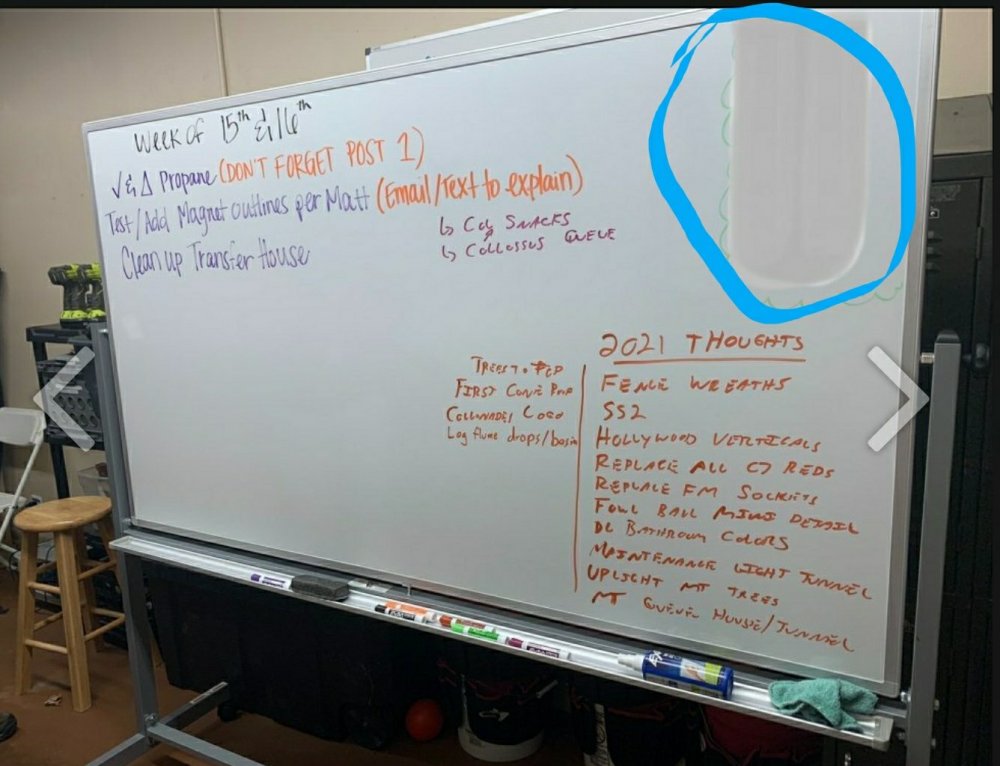 Week of 15th & 16th
√ & Δ Propane (DON'T FORGET POST 1)
Test/Add Magnet outlines per Matt (Email/Text to explain)
↳ Coly SNACKS
↳ COLLOSSUS QUEUE
Clean up Transfer House
2021 THOUGHTS
TREES TO PCP
FIRST CONE
COLLONADES LOGO
Log flume drops/basin
FENCE WREATHS
SS2
HOLLYWOOD VERTICALS
REPLACE ALL C7 REDS
REPLACE FM SOCKETS
FOWL BALL MINI DETAIL
DL BATHROOM COLORS
MAINTENANCE LIGHT TUNNEL
UPLIGHT MT TREES
MT QUEUE HOUSE/TUNNEL
EXPO